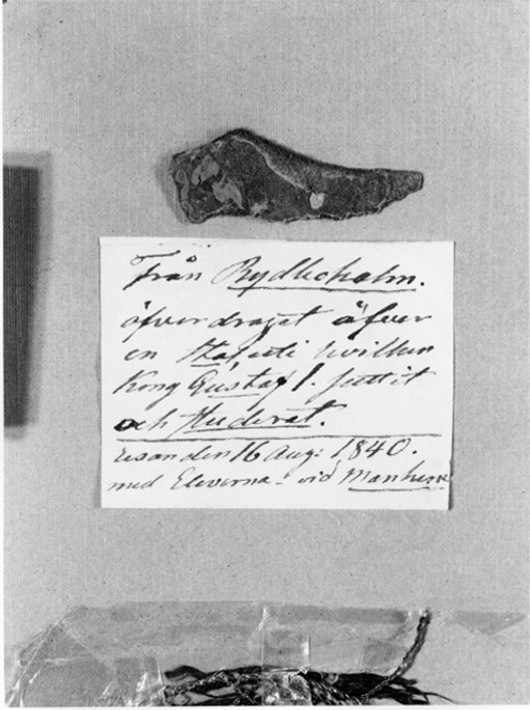 Från Rydboholm.
öfverdraget öfver
en Stol uti hvilken
Kong Gustaf I. suttit
och Studerat.
resan den 16 Aug: 1840.
med Eleverna vid Manhem